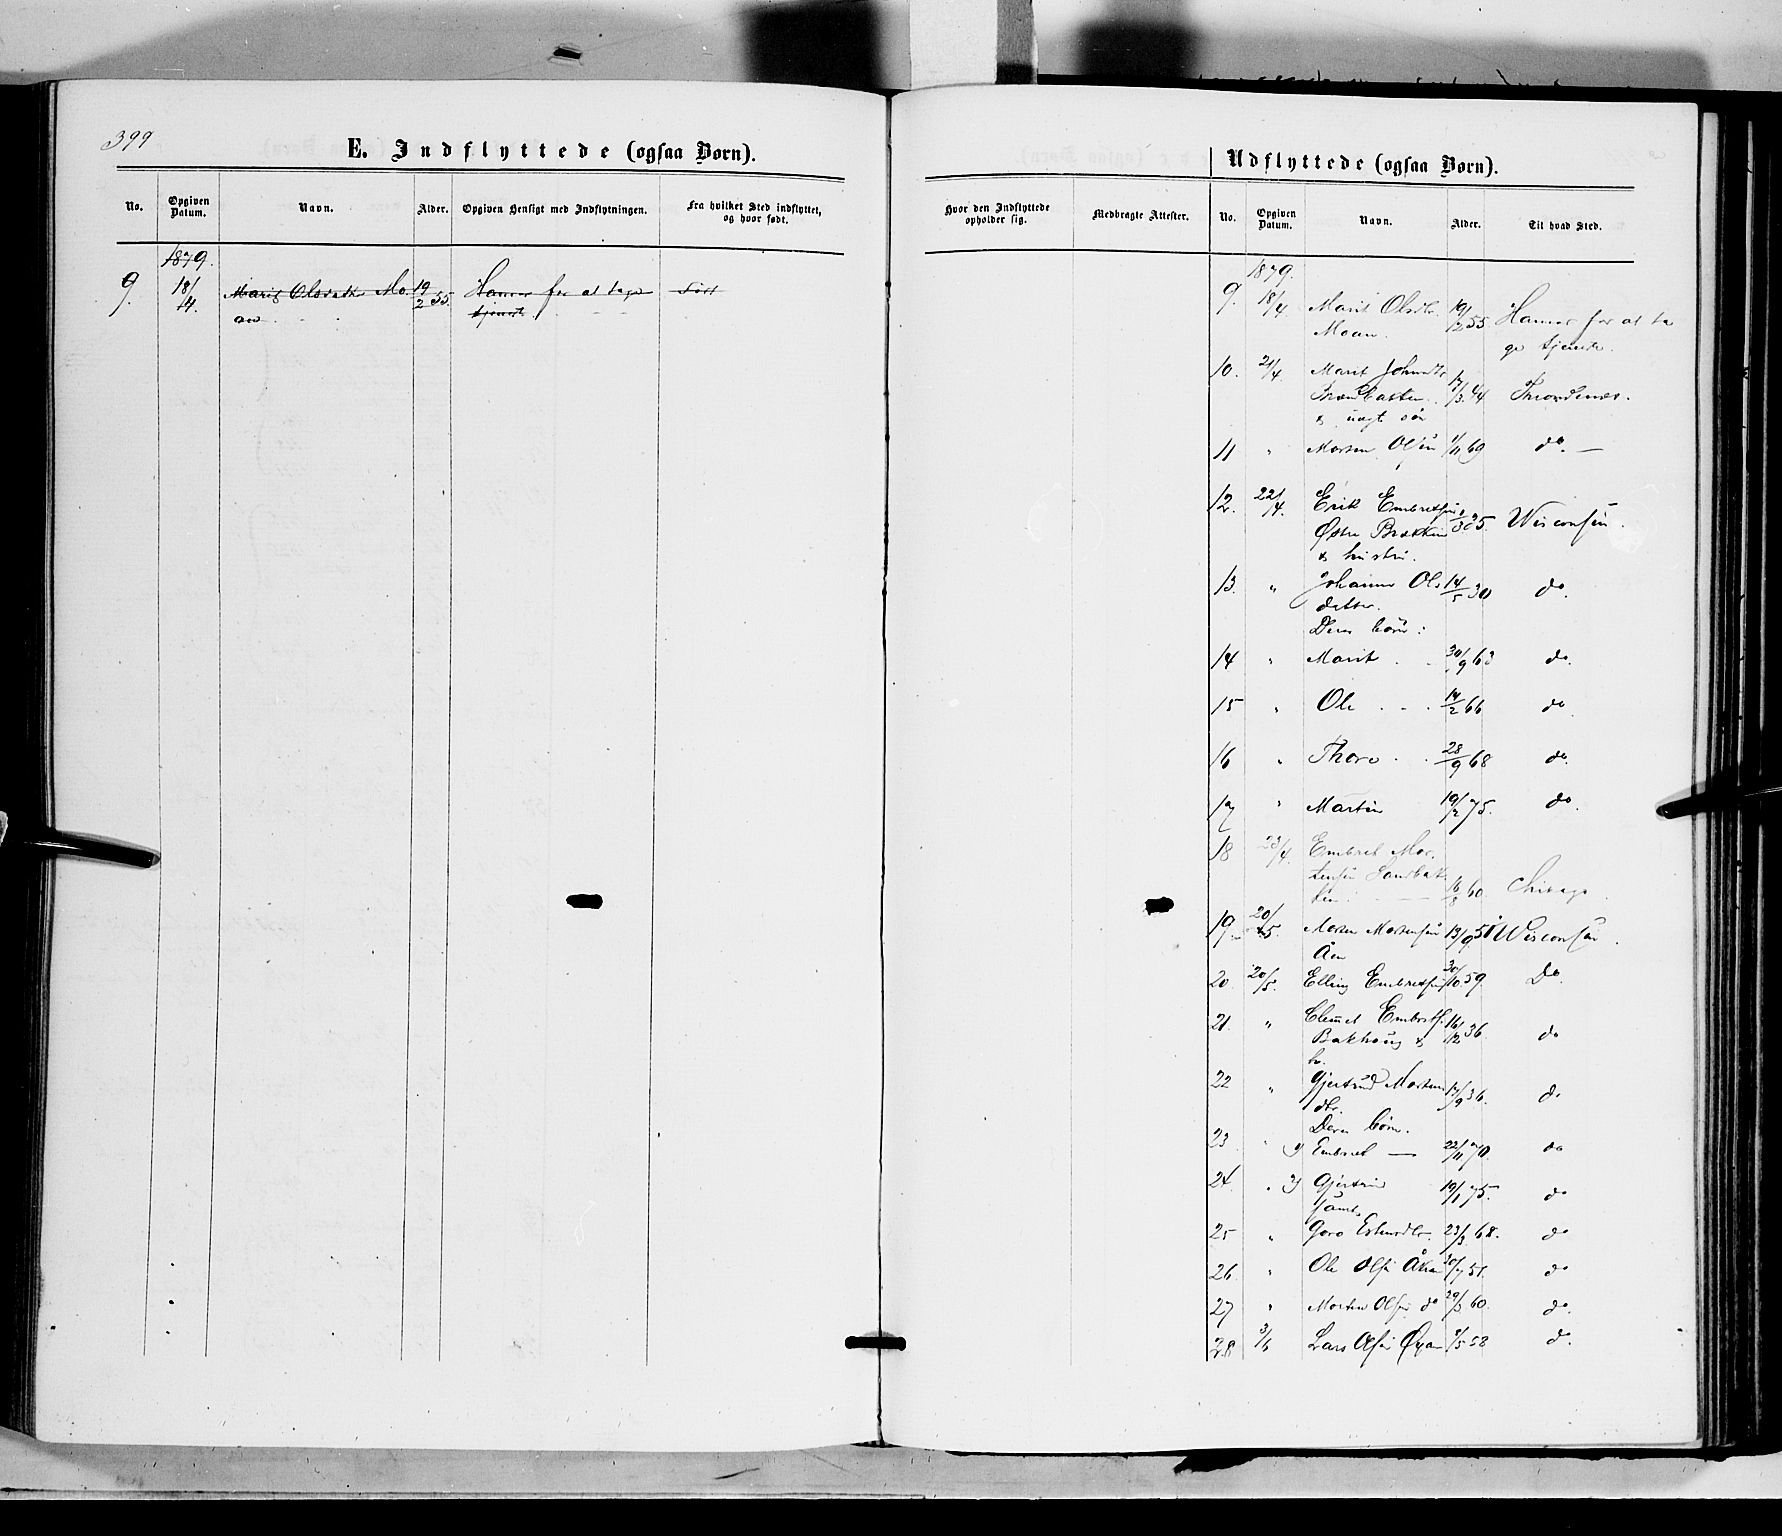 399
E. Indflyttede (ogsaa Børn).
No.
Opgiven Datum.
Navn.
Alder.
Opgiven Hensigt med Indflytningen.
Fra hvilket Sted indflyttet, og hvor født.
1879.
9. 18/4. Marit Olsdatter Mo. 19/2 55. Hamar for at tage
tjeneste
Udflyttede (ogsaa Børn).
Hvor den Indflyttede opholder sig.
Medbragte Attester.
No.
Opgiven Datum.
Navn.
Alder.
Til hvad Sted.
1879.
9. 18/4 Marit Olsdtr. 19/2 55. Hamar for at ta
Moan. ge tjeneste.
10. 21/4. Marit Johnsdtr 17/3 44 Throndenes.
& uægt søn
11 " Morten Olsen 1/11 69 do. —
12. 22/4. Erik Embretsen 35. Wisconsin.
Østre Brækken
& hustru.
13. " Johanne Ols 14/5 30 do.
datter.
Deres børn:
14 " Marit 30/9 63 do.
15 " Ole 14/2 66 do
16 " Thore 28/9 68 do.
17 " Martin 19/2 75. do.
18 23/4. Embret Mor.
tensen Sandbak
ken 60. Chicago.
19. 20/5. Morten Mortensen 13/9 51 Wisconsin.
Åen
20. 20/5. Elling Embretsen 30/10 59. Do.
21. " Clemet Embrets. 16/12 36. do
Bakhaug &
h.
22 " Gjertrud Mortens 17/9 36. do
dtr.
Deres børn.
23 " 1) Embret — 22/11 70. do
24 " 2) Gjertrud 19/1 75. do
samt
25 " Goro Estensdtr. 23/3 68. do
26. " Ole Olsen 20/7 51. do
27 " Morten Olsen do 29/3 60. do.
28 3/6 Lars Olsen Øyan 1/5 58 do.